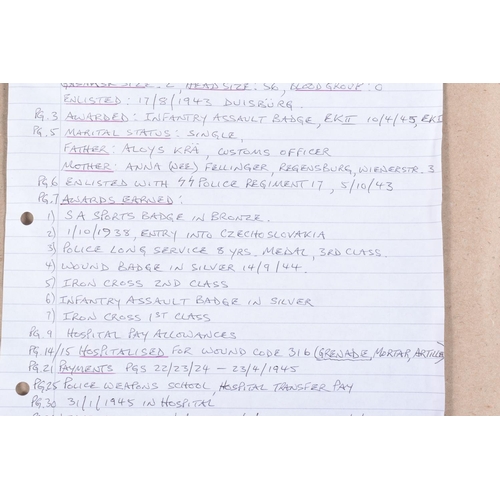 GASMASK SIZE: 2, HEAD SIZE: 56, BLOODGROUP: O
ENLISTED: 17/8/1943 DUISBÜRG.
PG.3 AWARDED: INFANTRY ASSAULT BADGE, EKII 10/4/45, EKI
PG.5 MARITAL STATUS: SINGLE,
FATHER: ALOYS KRÄ, CUSTOMS OFFICER
MOTHER: ANNA (NEE) FELLINGER, REGENSBURG, WIENERSTR. 3
PG.6 ENLISTED WITH ϟϟ POLICE REGIMENT 17, 5/10/43
PG.7 AWARDS EARNED:
1) S.A SPORTS BADGE IN BRONZE.
2) 1/10/1938, ENTRY INTO CZECHOSLOVAKIA
3) POLICE LONG SERVICE 8 YRS. MEDAL, 3RD CLASS.
4) WOUND BADGE IN SILVER 14/9/44.
5) IRON CROSS 2ND CLASS
6) INFANTRY ASSAULT BADGE IN SILVER
7) IRON CROSS 1ST CLASS
PG.9 HOSPITAL PAY ALLOWANCES
PG.14/15 HOSPITALISED FOR WOUND CODE 31b (GRENADE, MORTAR, ARTILLERY)
PG.21 PAYMENTS PGS 22/23/24 - 23/4/1945
PG.25 POLICE WEAPONS SCHOOL, HOSPITAL TRANSFER PAY
PG.30 31/1/1945 IN HOSPITAL